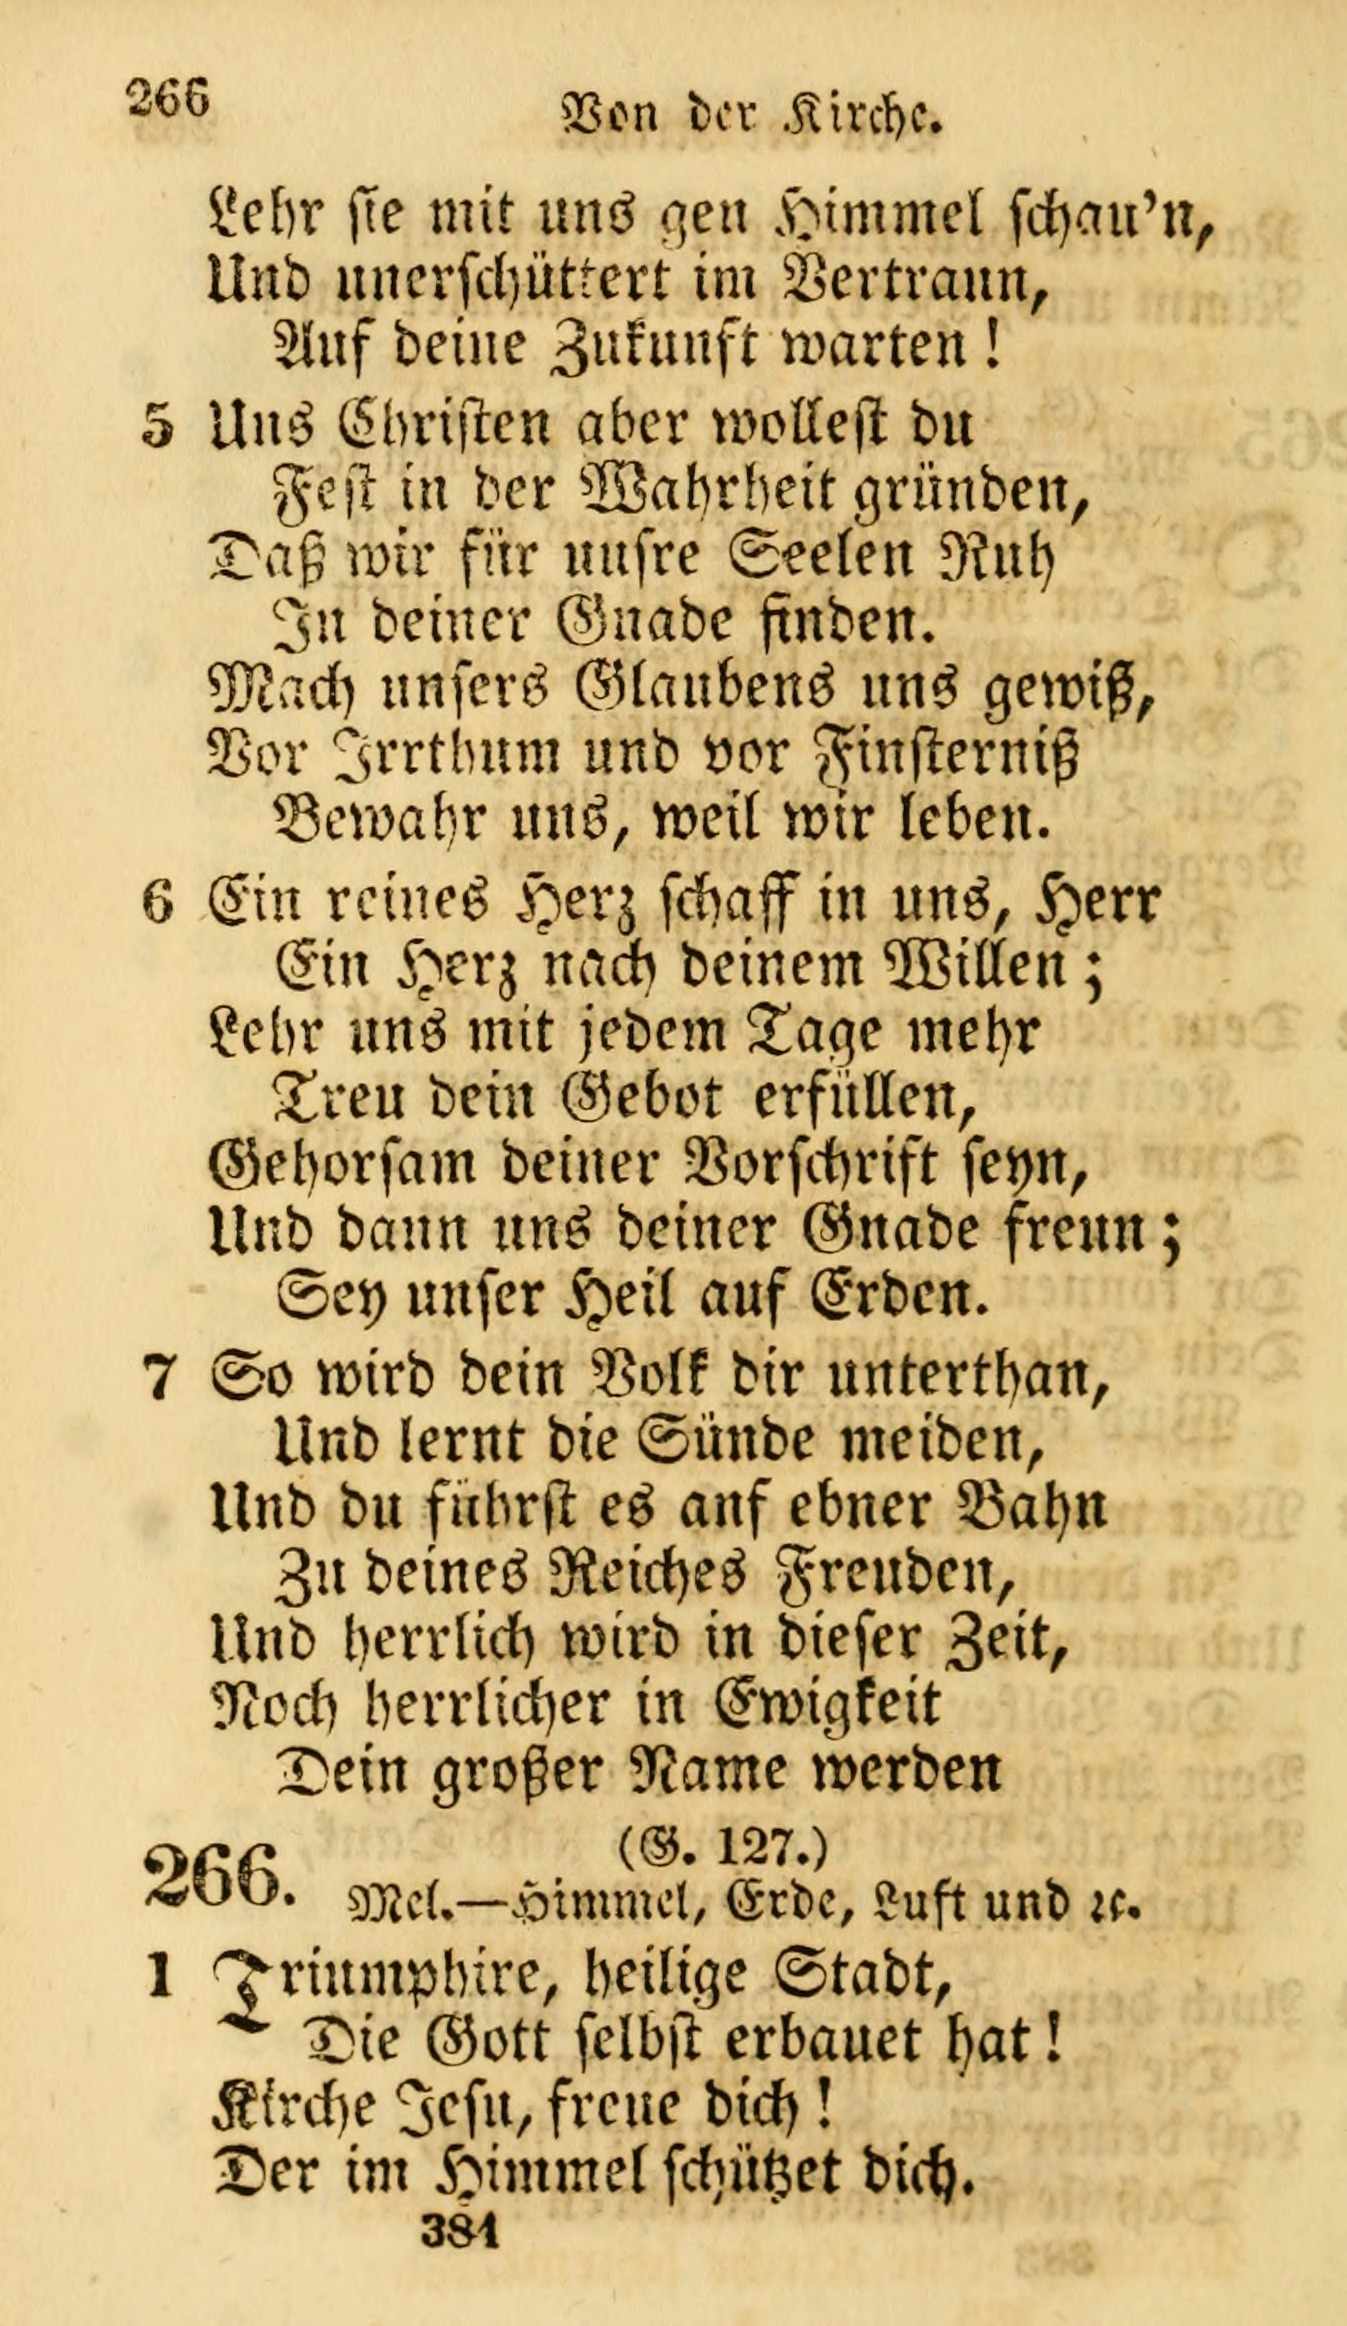 266
Von der Kirche.
Lehr sie mit uns gen Himmel schau'n,
Und unerschüttert im Vertraun,
Auf deine Zukunft warten!
5 Uns Christen aber wollest du
Fest in der Wahrheit gründen,
Daß wir für unsre Seelen Ruh
In deiner Gnade finden.
Mach unsers Glaubens uns gewiß,
Vor Irrthum und vor Finsterniß
Bewahr uns, weil wir leben.
6 Ein reines Herz schaff in uns, Herr
Ein Herz nach deinem Willen;
Lehr uns mit jedem Tage mehr
Treu dein Gebot erfüllen,
Gehorsam deiner Vorschrift seyn,
Und dann uns deiner Gnade freun;
Sey unser Heil auf Erden.
7 So wird dein Volk dir unterthan,
Und lernt die Sünde meiden,
Und du führst es anf ebner Bahn
Zu deines Reiches Freuden,
Und herrlich wird in dieser Zeit,
Noch herrlicher in Ewigkeit
Dein großer Name werden
(G. 127.)
266. Mel.—Himmel, Erde, Luft und ꝛc.
1 Triumphire, heilige Stadt,
Die Gott selbst erbauet hat!
Kirche Jesu, freue dich!
Der im Himmel schützet dich.
384